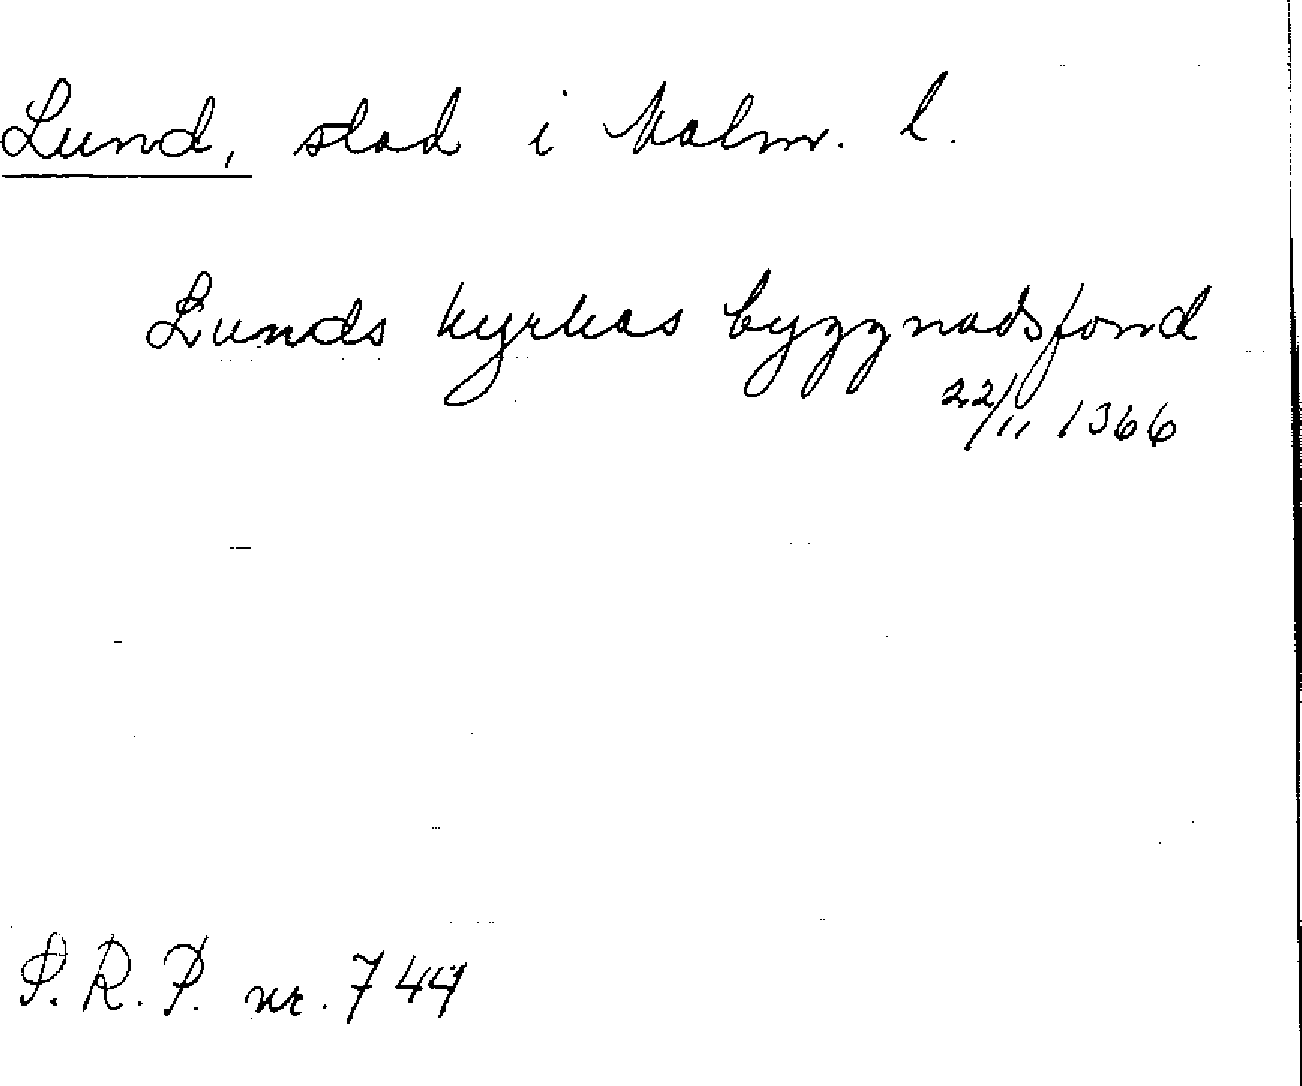 Lund, stad i Malm. l.
Lunds kyrkas byggnadsfond
22/11 1366
S.R.P. nr. 744